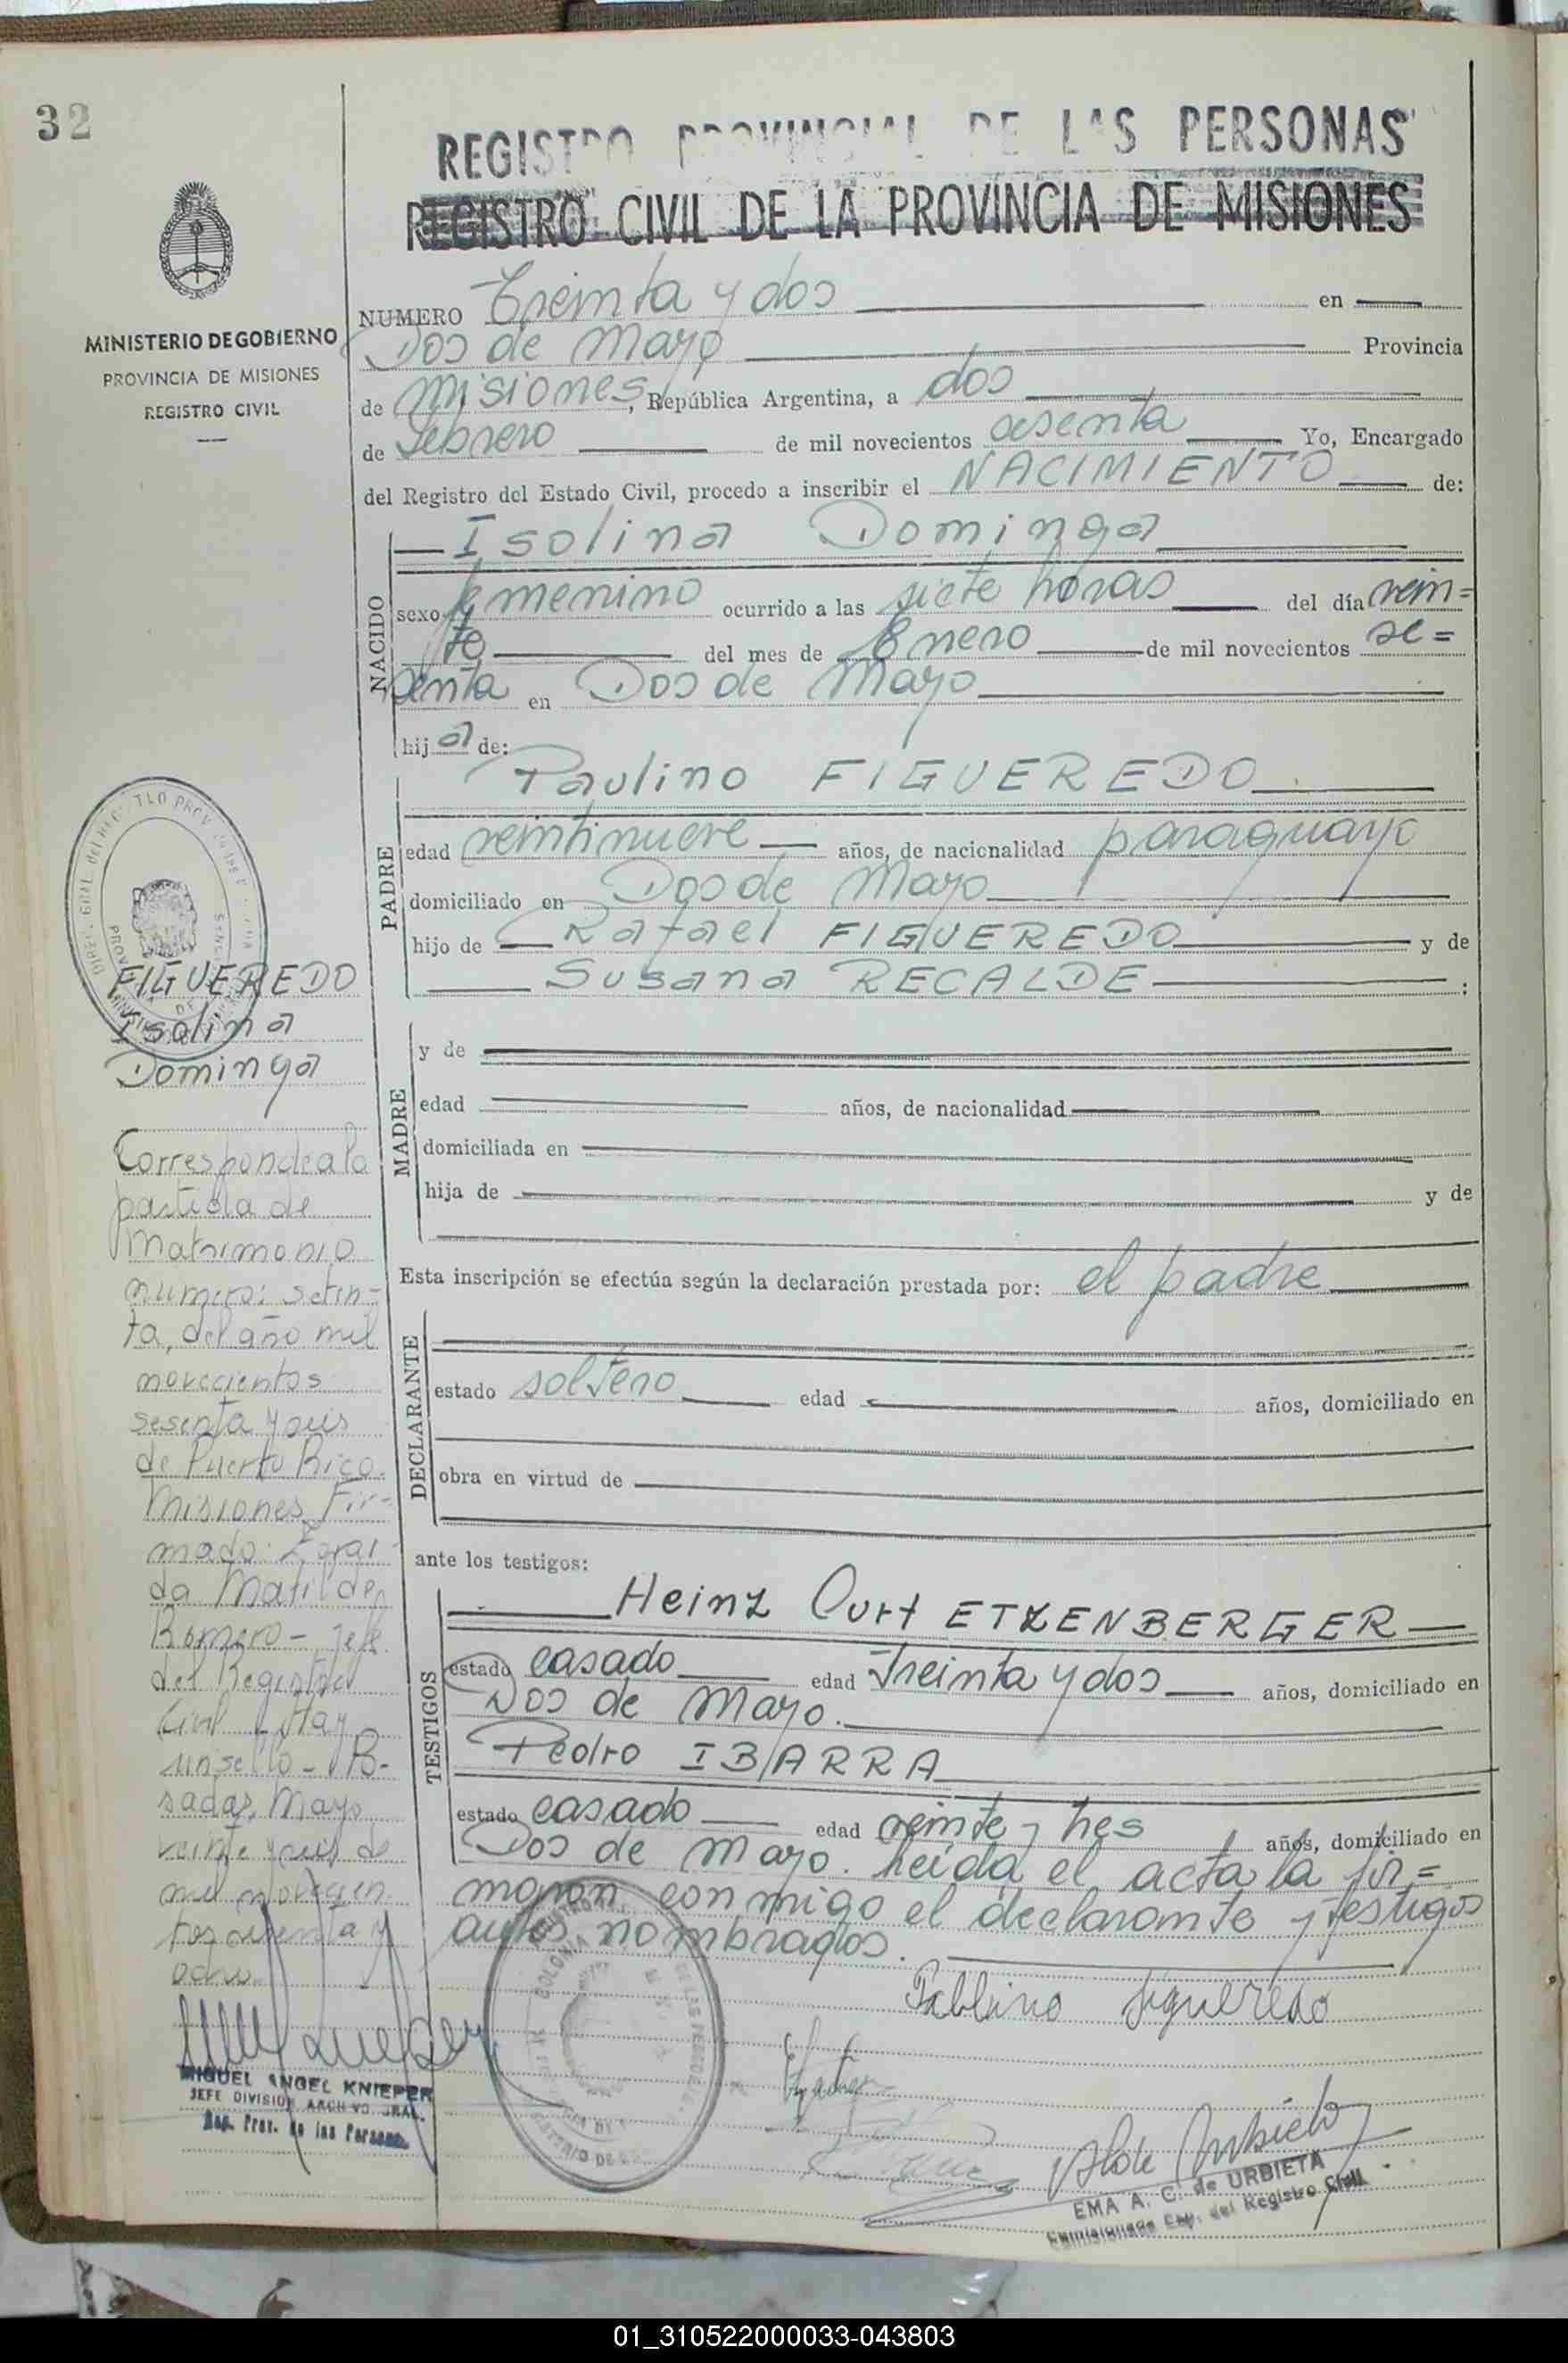 32
REGISTRO PROVINCIAL DE LAS PERSONAS
REGISTRO CIVIL DE LA PROVINCIA DE MISIONES
MINISTERIO DE GOBIERNO
PROVINCIA DE MISIONES
REGISTRO CIVIL
NUMERO Treinta y dos en
Dos de Mayo Provincia
de Misiones, República Argentina, a dos
de Febrero de mil novecientos sesenta Yo, Encargado
del Registro del Estado Civil, procedo a inscribir el NACIMIENTO de:
NACIDO
Isolina Dominga
sexo femenino ocurrido a las siete horas del día vein=
te del mes de Enero de mil novecientos se=
senta en Dos de Mayo
hija de:
PADRE
Paulino FIGUEREDO
edad veintinueve años, de nacionalidad paraguayo
domiciliado en Dos de Mayo
hijo de Rafael FIGUEREDO y de
Susana RECALDE :
MADRE
y de
edad años, de nacionalidad
domiciliada en
hija de y de
Esta inscripción se efectúa según la declaración prestada por: el padre
DECLARANTE
estado soltero edad años, domiciliado en
obra en virtud de
ante los testigos:
TESTIGOS
Heinz Curt ETZENBERGER
estado casado edad Treinta y dos años, domiciliado en
Dos de Mayo.
Pedro IBARRA
estado casado edad veinte y tres años, domiciliado en
Dos de Mayo. Leída el acta la fir=
maron conmigo el declarante y testigos
antes nombrados.
Figueredo
EMA A. C. de URBIETA
del Registro Civil
FIGUEREDO
Isolina
Dominga
Corresponde a la
partida de
Matrimonio
numero: seten-
ta, del año mil
novecientos
sesenta y seis
de Puerto Rico.
Misiones Fir-
mado:
da Matilde
Romero - Jefe
del Registro
Civil - Hay
un sello - Po-
sadas, Mayo
veinte y seis de
mil novecien
tos sesenta y
ocho.
MIGUEL ANGEL KNIEPER
JEFE DIVISION ARCHIVO GRAL.
Reg. Prov. de las Personas
01_310522000033-043803